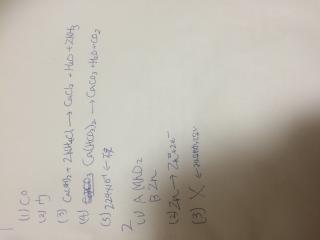 1
(1) CO
(2) ウ
(3) Ca(OH)₂ + 2NH₄Cl → CaCl₂ + H₂O + 2NH₃
(4) Ca(HCO₃)₂ → CaCO₃ + H₂O + CO₂
(5) 2.24×10⁻¹ ←
2
(1) A MnO₂
B Zn
(2) Zn → Zn²⁺ + 2e⁻
(3) X ←